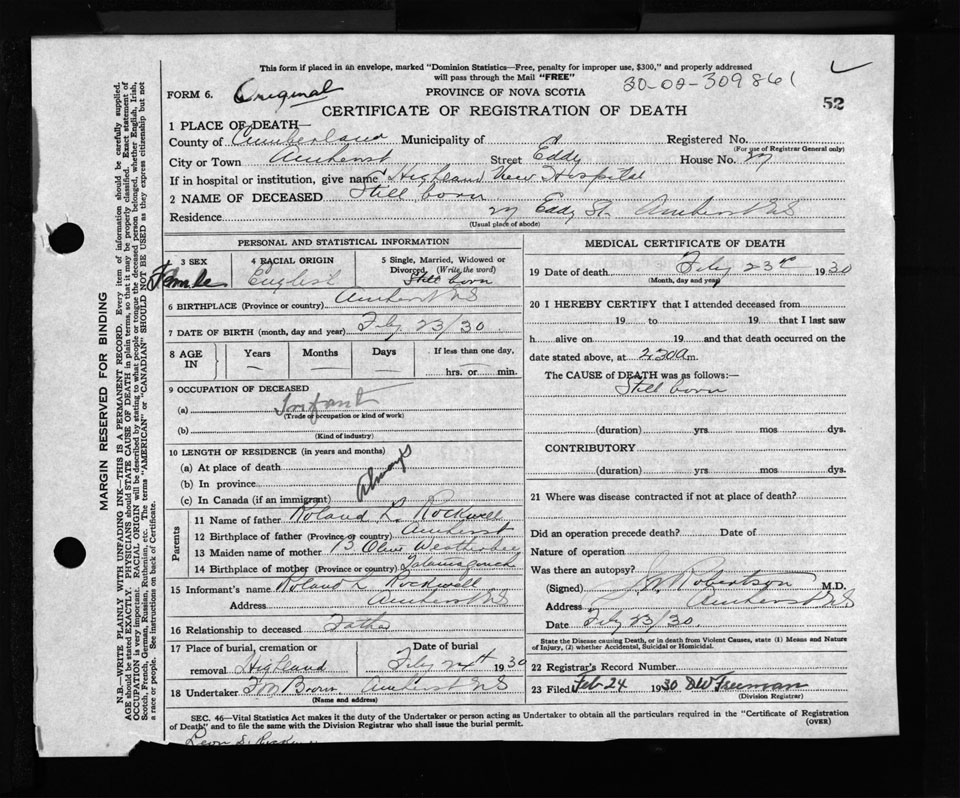 This form if placed in an envelope, marked "Dominion Statistics—Free, penalty for improper use, $300," and properly addressed
will pass through the Mail "FREE"
30-02-309861
FORM 6. Original
PROVINCE OF NOVA SCOTIA
52
CERTIFICATE OF REGISTRATION OF DEATH
1 PLACE OF DEATH—
County of Cumberland Municipality of Registered No.
(For use of Registrar General only)
City or Town Amherst Street Eddy House No.
If in hospital or institution, give name Highland View Hospital
2 NAME OF DECEASED Still born
Residence Eddy St. Amherst NS
(Usual place of abode)
PERSONAL AND STATISTICAL INFORMATION
3 SEX Female
4 RACIAL ORIGIN English
5 Single, Married, Widowed or
Divorced (Write the word)
Still born
6 BIRTHPLACE (Province or country) Amherst NS
7 DATE OF BIRTH (month, day and year) Feby 23/30
8 AGE IN Years — Months — Days If less than one day,
hrs. or min.
9 OCCUPATION OF DECEASED
(a) Infant
(Trade or occupation or kind of work)
(b)
(Kind of industry)
10 LENGTH OF RESIDENCE (in years and months)
(a) At place of death
(b) In province Always
(c) In Canada (if an immigrant)
Parents
11 Name of father Roland L. Rockwell
12 Birthplace of father (Province or country) Amherst
13 Maiden name of mother B. Olive Weatherbee
14 Birthplace of mother (Province or country) Tatamagouch
15 Informant's name Roland L Rockwell
Address Amherst NS
16 Relationship to deceased Father
17 Place of burial, cremation or
removal Highland
Date of burial
Feby 24th 1930
18 Undertaker Brown Amherst NS
(Name and address)
MEDICAL CERTIFICATE OF DEATH
19 Date of death Feby 23rd 1930
(Month, day and year)
20 I HEREBY CERTIFY that I attended deceased from
19 to 19 that I last saw
h alive on 19 and that death occurred on the
date stated above, at 2.30 a m.
The CAUSE of DEATH was as follows:—
Still born
(duration) yrs mos dys.
CONTRIBUTORY
(duration) yrs. mos. dys.
21 Where was disease contracted if not at place of death?
Did an operation precede death? Date of
Nature of operation
Was there an autopsy?
(Signed) Robertson M.D.
Address Amherst NS
Date Feby 23/30.
State the Disease causing Death, or in death from Violent Causes, state (1) Means and Nature
of Injury, (2) whether Accidental, Suicidal or Homicidal.
22 Registrar's Record Number
23 Filed Feb 24 1930 DW Freeman
(Division Registrar)
SEC. 46—Vital Statistics Act makes it the duty of the Undertaker or person acting as Undertaker to obtain all the particulars required in the "Certificate of Registration
of Death" and to file the same with the Division Registrar who shall issue the burial permit.
(OVER)
Leon S.
MARGIN RESERVED FOR BINDING
N.B.—WRITE PLAINLY WITH UNFADING INK—THIS IS A PERMANENT RECORD. Every item of information should be carefully supplied.
AGE should be stated EXACTLY. PHYSICIANS should STATE CAUSE OF DEATH in plain terms, so that it may be properly classified. Exact statement of
OCCUPATION is very important. RACIAL ORIGIN will be described by stating to what people or tongue the deceased person belonged, whether English, Irish,
Scotch, French, German, Russian, Ruthenian, etc. The terms "AMERICAN" or "CANADIAN" SHOULD NOT BE USED as they express citizenship but not
a race or people. See instructions on back of Certificate.